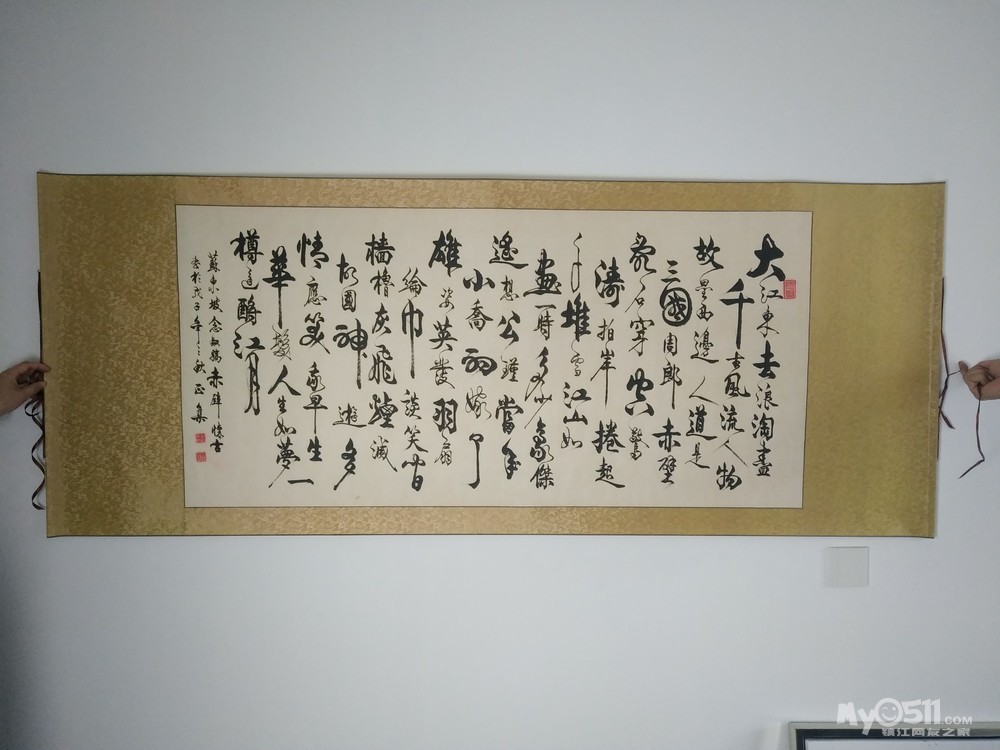 大江東去浪淘盡
千古風流人物
故壘西邊人道是
三國周郎赤壁
亂石穿空驚
濤拍岸捲起
千堆雪江山如
畫一時多少豪傑
遙想公瑾當年
小喬初嫁了
雄姿英發羽扇
綸巾談笑間
檣櫓灰飛煙滅
故國神遊多
情應笑我早生
華髮人生如夢一
樽還酹江月
蘇東坡念奴嬌赤壁懷古
書於戊子年之秋正集
My0511.COM
镇江网友之家